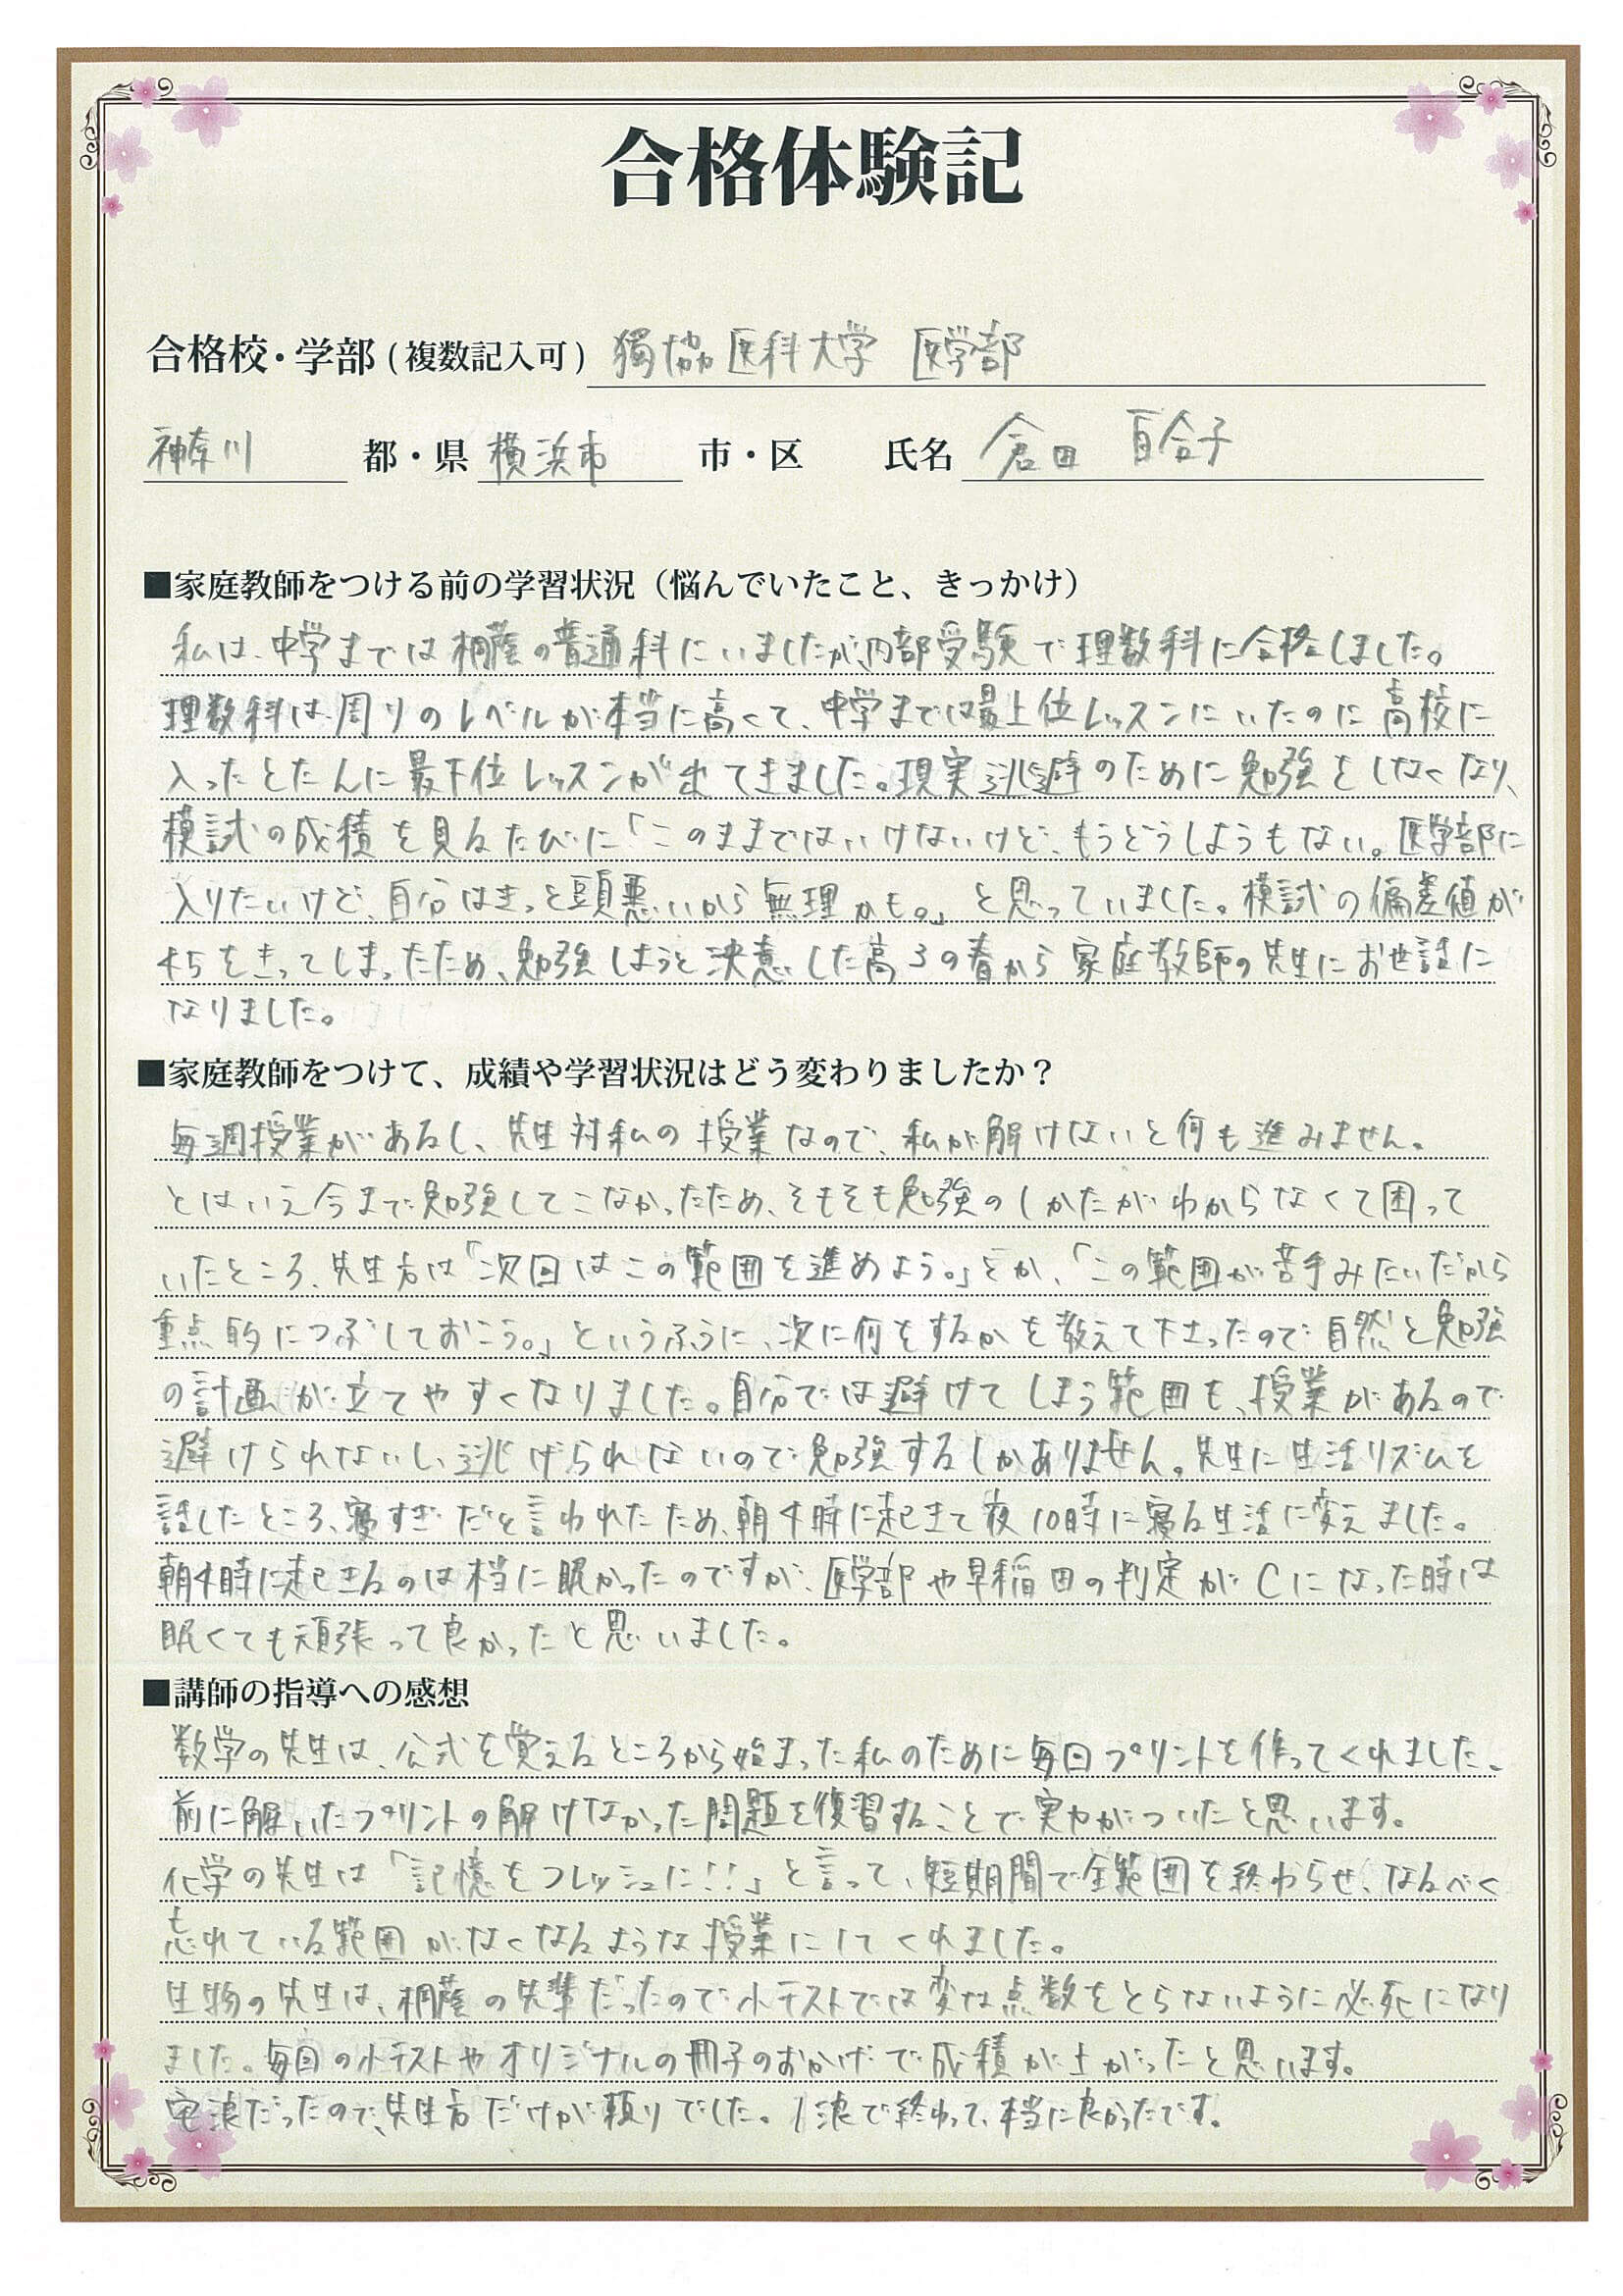 合格体験記
合格校・学部(複数記入可) 獨協医科大学 医学部
神奈川 都・県 横浜市 市・区 氏名 倉田 百合子
■家庭教師をつける前の学習状況（悩んでいたこと、きっかけ）
私は、中学までは桐蔭の普通科にいましたが、内部受験で理数科に合格しました。
理数科は周りのレベルが本当に高くて、中学までは最上位レッスンにいたのに高校に
入ったとたんに最下位レッスンが出てきました。現実逃避のために勉強をしなくなり、
模試の成積を見るたびに「このままではいけないけど、もうどうしようもない。医学部に
入りたいけど、自分はきっと頭悪いから無理かも。」と思っていました。模試の偏差値が
45をきってしまったため、勉強しようと決意した高3の春から家庭教師の先生にお世話に
なりました。
■家庭教師をつけて、成績や学習状況はどう変わりましたか？
毎週授業があるし、先生対私の授業なので、私が解けないと何も進みません。
とはいえ今まで勉強してこなかったため、そもそも勉強のしかたがわからなくて困って
いたところ、先生方は「次回はこの範囲を進めよう。」とか、「この範囲が苦手みたいだから
重点的につぶしておこう。」というふうに、次に何をするかを教えて下さったので自然と勉強
の計画が立てやすくなりました。自分では避けてしまう範囲も、授業があるので
避けられないし、逃げられないので勉強するしかありません。先生に生活リズムを
話したところ、寝すぎだと言われたため、朝4時に起きて夜10時に寝る生活に変えました。
朝4時に起きるのは本当に眠かったのですが、医学部や早稲田の判定がCになった時は
眠くても頑張って良かったと思いました。
■講師の指導への感想
数学の先生は、公式を覚えるところから始まった私のために毎日プリントを作ってくれました。
前に解いたプリントの解けなかった問題を復習することで実力がついたと思います。
化学の先生は「記憶をフレッシュに!!」と言って、短期間で全範囲を終わらせ、なるべく
忘れている範囲がなくなるような授業にしてくれました。
生物の先生は、桐蔭の先輩だったので小テストでは変な点数をとらないように必死になり
ました。毎回の小テストやオリジナルの冊子のおかげで成積が上がったと思います。
宅浪だったので、先生方だけが頼りでした。1浪で終わって、本当に良かったです。